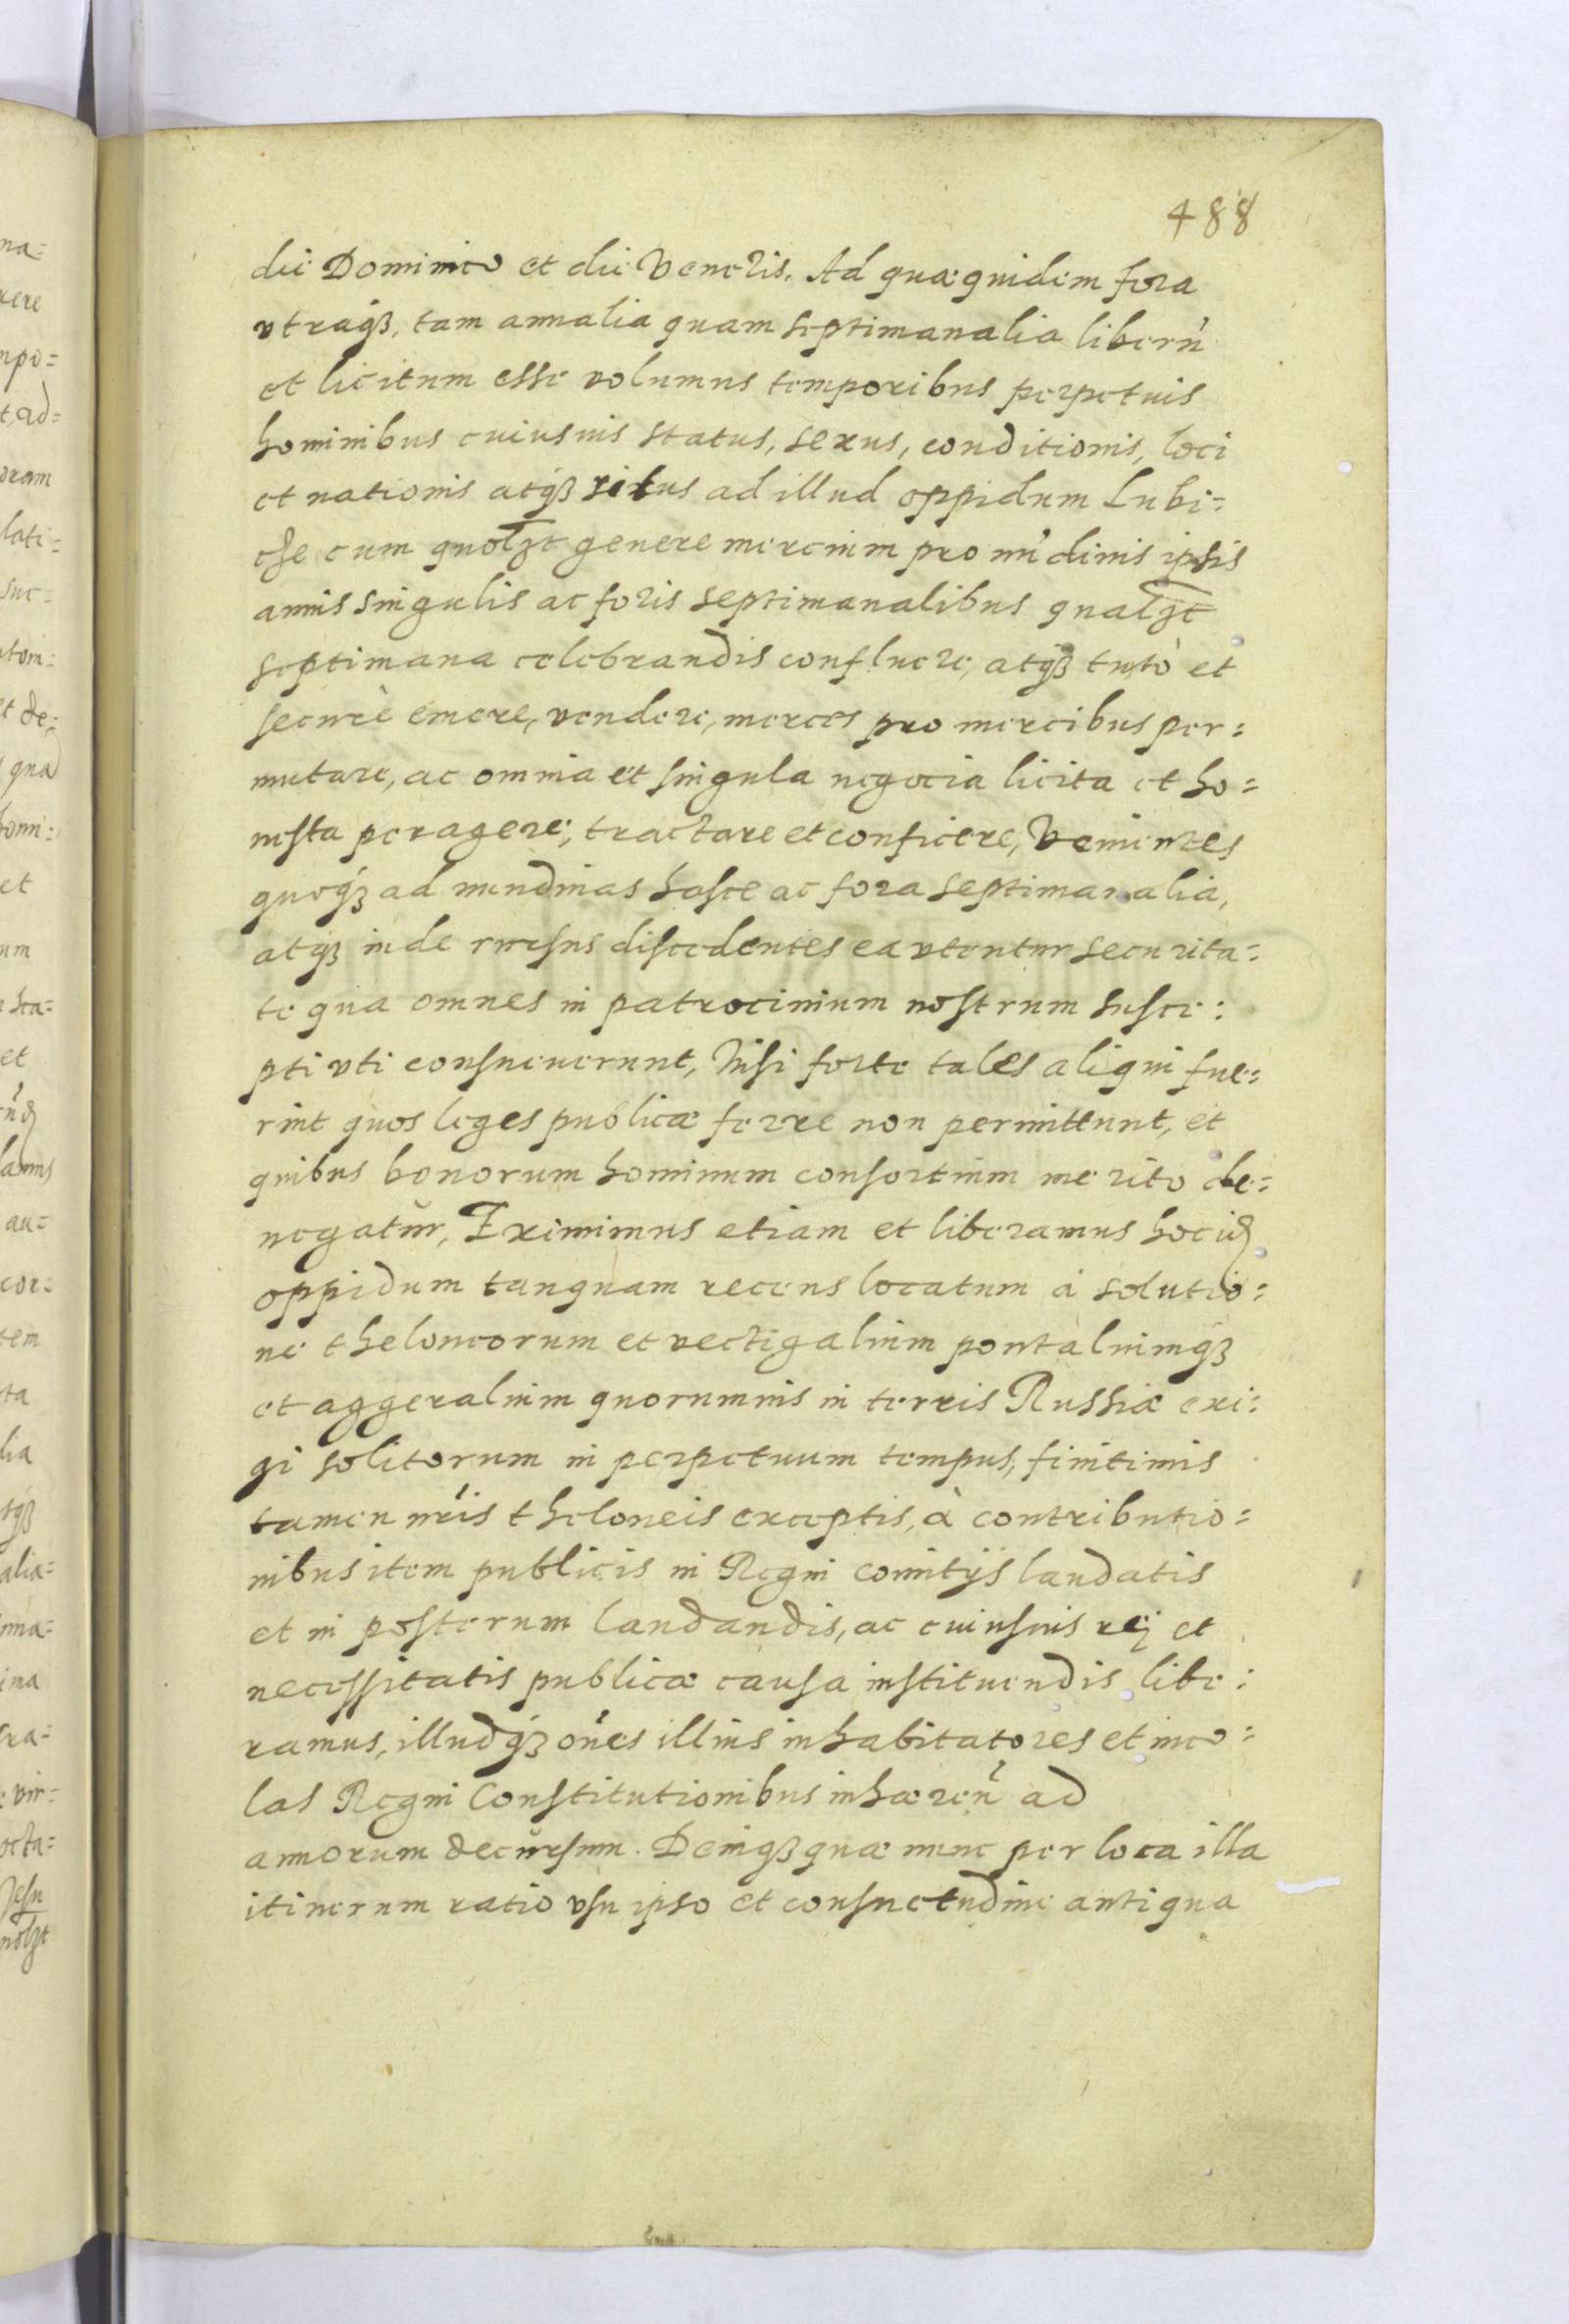 488
die Dominico et die Veneris. Ad quæ quidem fora
vtraqȝ, tam annalia quam septimanalia liberũ
et licitum esse volumus temporibus perpetuis
hominibus cuiusuis status, sexus, conditionis, loci
et nationis atqȝ ritus ad illud oppidum Lubi=
cȝe cum quolȝt genere mercium pro nũdinis ipsis
annis singulis ac foris septimanalibus qualȝt
septimana celebrandis confluere, atqȝ tutò et
securè emere, vendere, merces pro mercibus per=
mutare, ac omnia et singula negocia licita et ho=
nesta peragere, tractare et conficere, Venientes
quoqȝ ad nundinas hasce ac fora septimanalia,
atqȝ inde rursus discedentes ea vtentur securita=
te qua omnes in patrocinium nostrum susce=
pti vti consueuerunt, Nisi forte tales aliqui fue=
rint quos leges publicæ ferre non permittunt, et
quibus bonorum hominum consortium merito de=
negatur, Eximimus etiam et liberamus hoc id
oppidum tanquam recens locatum à solutio=
ne theloneorum et vectigalium pontaliumqȝ
et aggeralium quorumuis in terris Russiæ exi=
gi solitorum in perpetuum tempus, finitimis
tamen nr̃is theloneis exceptis, à contributio=
nibus item publicis in Regni comitijs laudatis
et in posterum laudandis, ac cuiusuis rej et
necessitatis publicæ causa instituendis libe=
ramus, illudqȝ om̃es illius inhabitatores et inco=
las Regni Constitutionibus inhæren̄ ad
annorum decursum. Deinqȝ quæ nunc per loca illa
itinerum ratio vsu ipso et consuetudine antiqua